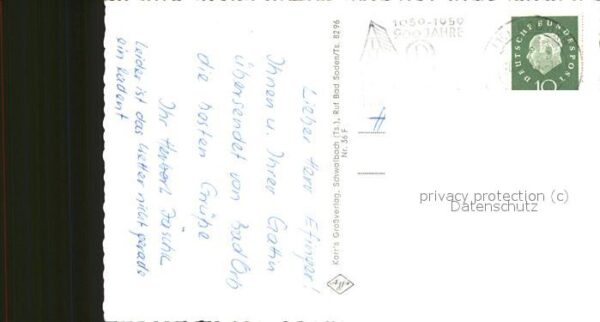 Lieber Herr Efinger!
Ihnen u. Ihrer Gattin
übersendet von Bad Orb
die besten Grüße
Ihr Herbert
Leider ist das Wetter nicht gerade
einladent
Karr's Großverlag, Schwalbach (Ts.), Ruf Bad Soden/Ts. 8296
Nr. 36 F
1059-1959
900 JAHRE
DEUTSCHE BUNDESPOST
10
privacy protection (c)
Datenschutz